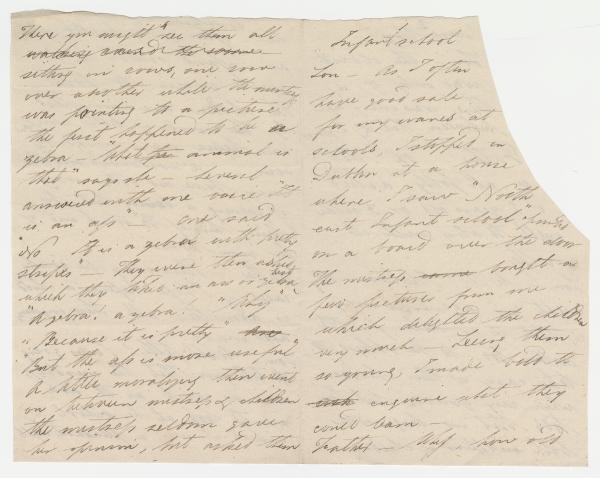 There you might see them all
walking round the room
sitting in rows, one row
over another while the mistress
was pointing to a picture
the first happened to be a
zebra — "What animal is
that" says she — several
answered with one voice "It
is an ass" — one said
"No It is a zebra with pretty
stripes" — They were then asked
which they liked, an ass or zebra best
"A zebra! a zebra. "Why"
"Because it is pretty"
"But the ass is more useful"
A little moralizing then went
on between mistress & children
the mistress seldom gave
her opinion, but asked them
Infant school
Son — As I often
have good sale
for my wares at
schools, I stopped in
Dublin at a house
where I saw "North
east Infant school" printed
on a board over the door
The mistress came bought a
few pictures from me
which delighted the children
very much — Seeing them
so young, I made bold to
enquire what they
could learn —
Father — Why, how old